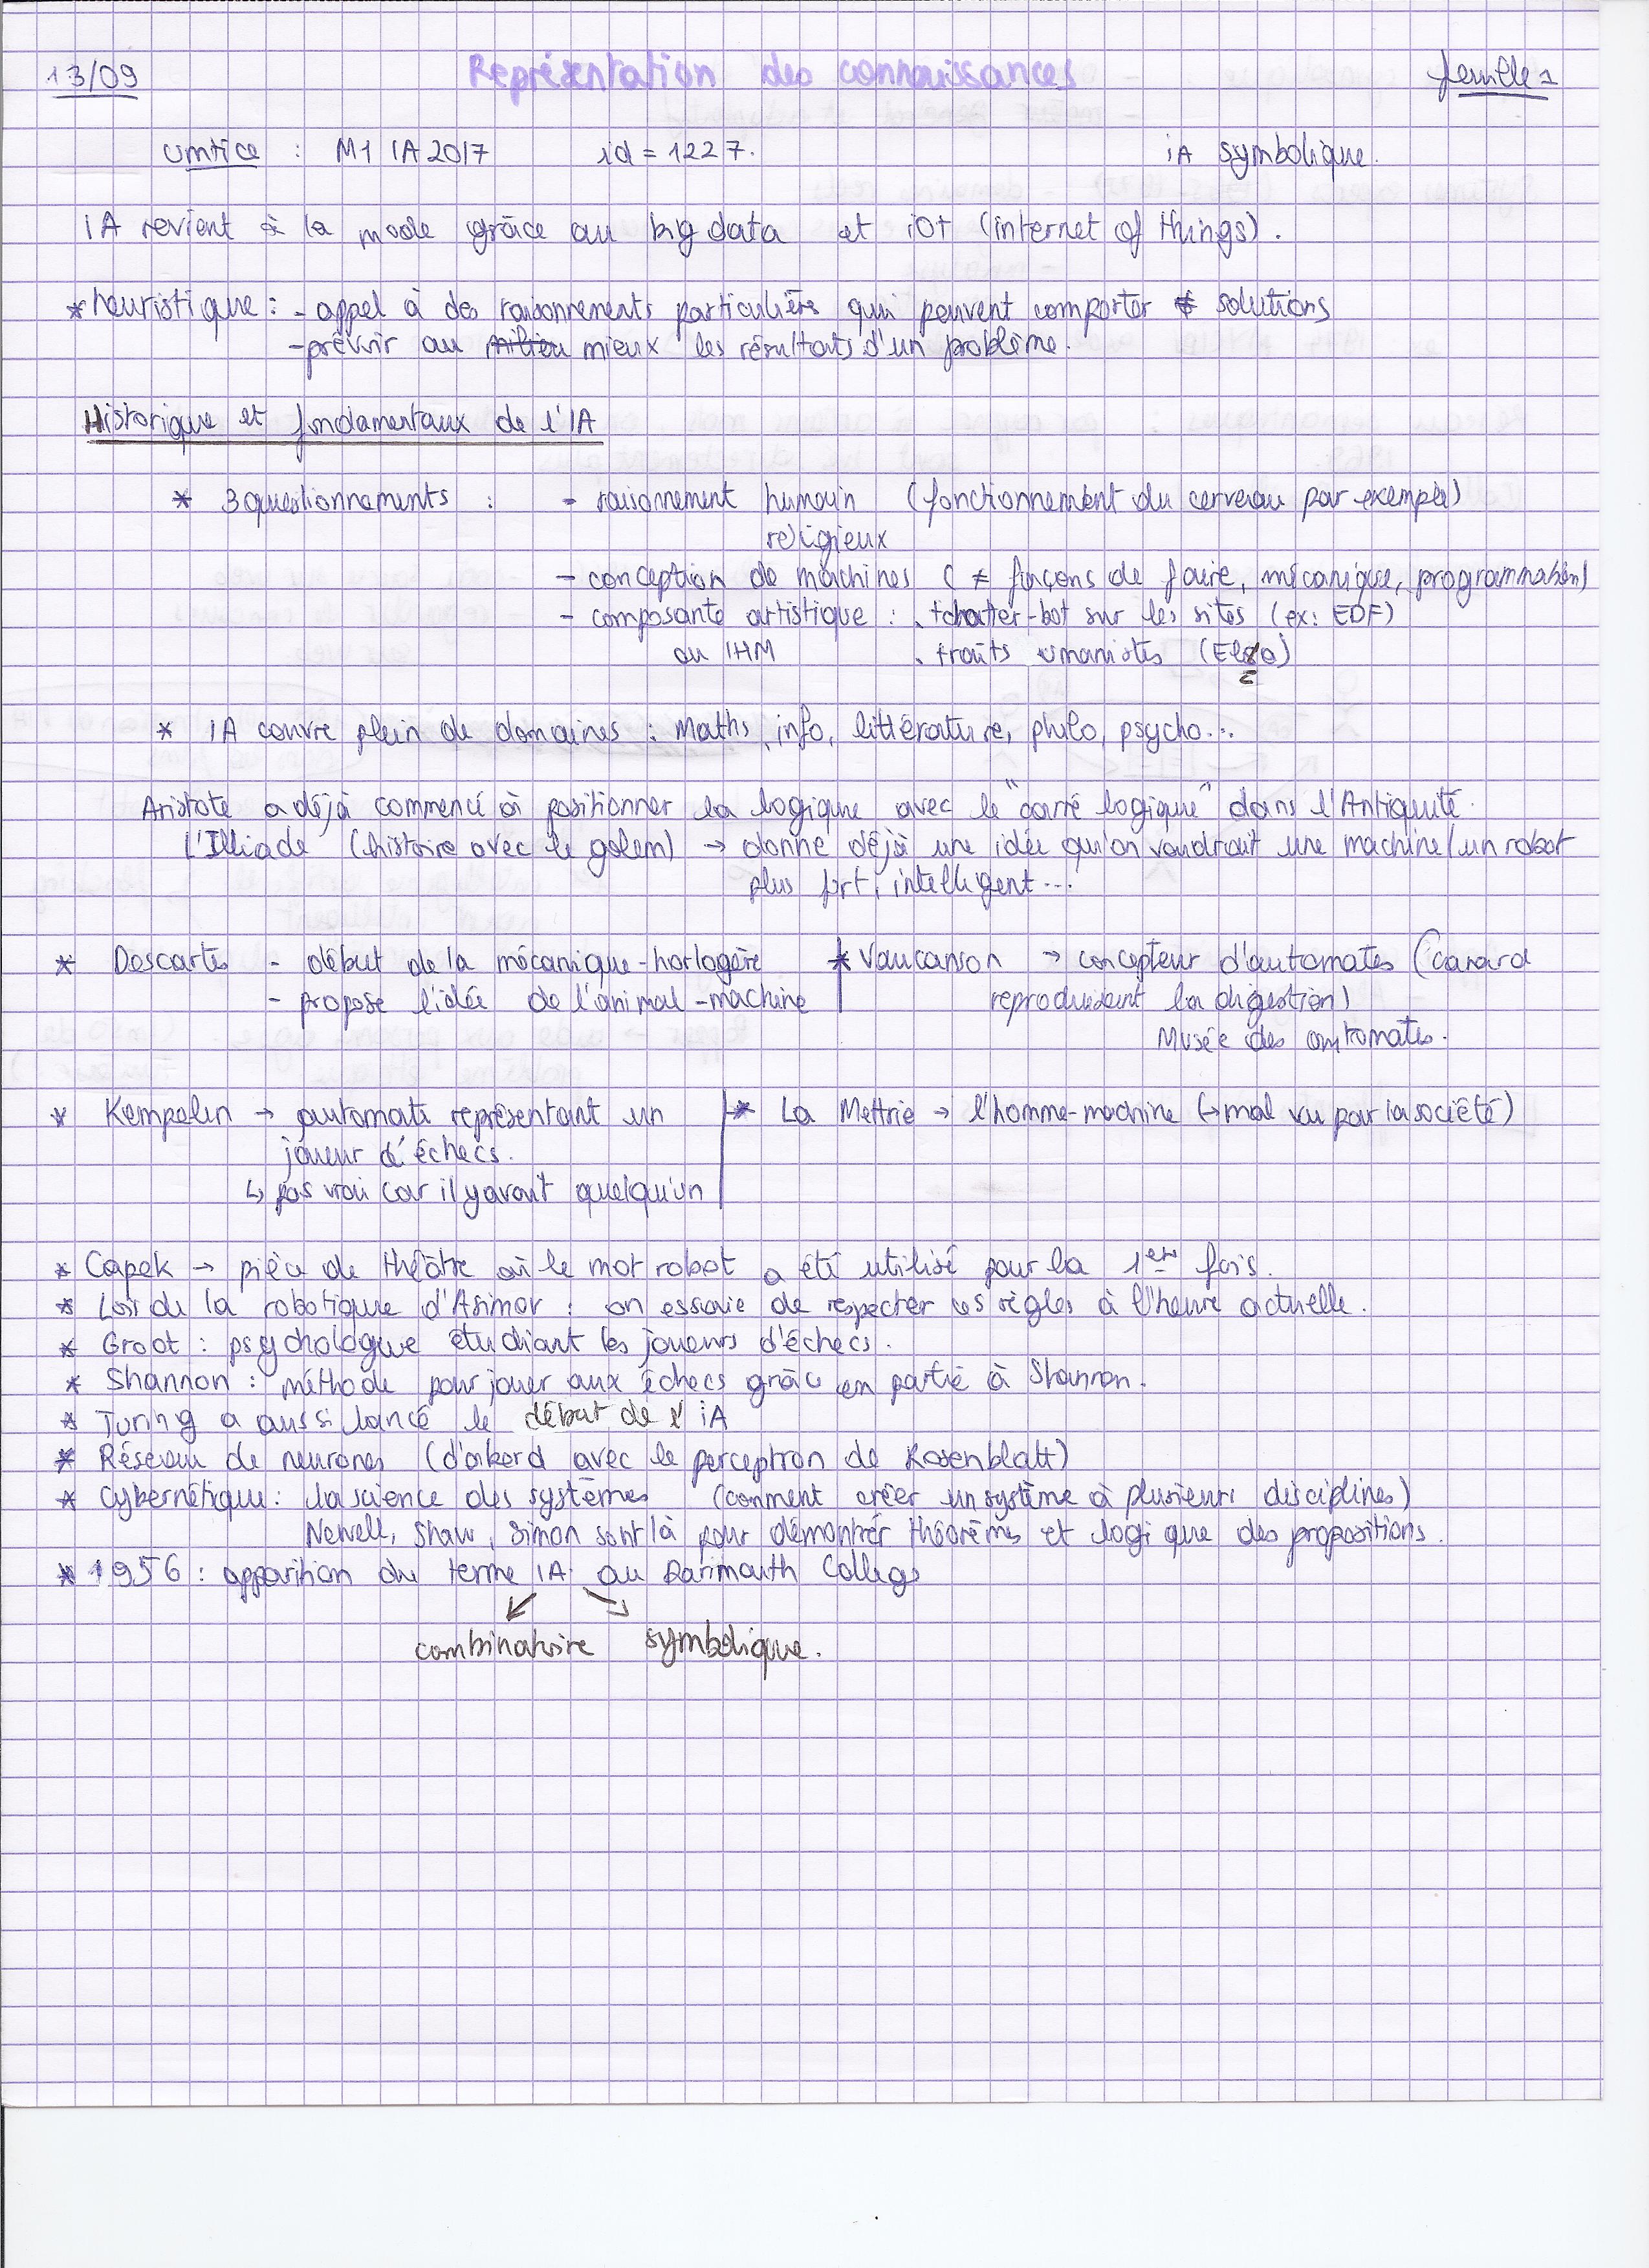 13/09
Représentation des connaissances
feuille 1
umtice : M1 IA 2017 id = 1227. iA symbolique.
IA revient à la mode grâce au big data et iOt (internet of things).
* heuristique : - appel à des raisonnements particuliers qui peuvent comporter ≠ solutions
- prévoir au milieu mieux les résultats d'un problème.
Historique et fondamentaux de l'IA
* 3 questionnements : - raisonnement humain (fonctionnement du cerveau par exemple)
religieux
- conception de machines ( ≠ façons de faire, mécanique, programmation)
- composante artistique : . tchatter-bot sur les sites (ex: EDF)
ou IHM . traits umanistes
* IA couvre plein de domaines : Maths, info, littérature, philo, psycho...
Aristote a déjà commencé à positionner la logique avec le "carré logique" dans l'Antiquité.
L'Illiade (histoire avec le golem) → donne déjà une idée qu'on voudrait une machine/un robot
plus fort, intelligent...
* Descartes - début de la mécanique-horlogère
- propose l'idée de l'animal-machine
* Vaucanson → concepteur d'automates (canard
reproduisant la digestion)
Musée des automates.
* Kempelen → automate représentant un
joueur d'échecs.
↳ pas vrai car il y avait quelqu'un
* La Mettrie → l'homme-machine (→ mal vu par la société)
* Capek → pièce de théâtre où le mot robot a été utilisé pour la 1ere fois.
* Loi de la robotique d'Asimov : on essaie de respecter ces règles à l'heure actuelle.
* Groot : psychologue étudiant les joueurs d'échecs.
* Shannon : méthode pour jouer aux échecs grâce en partie à Shannon.
* Turing a aussi lancé le début de l'iA
* Réseau de neurones (d'abord avec le perceptron de Rosenblatt)
* Cybernétique : la science des systèmes (comment créer un système à plusieurs disciplines)
Newell, Shaw, Simon sont là pour démontrer théorèmes et logique des propositions.
* 1956 : apparition du terme IA au Darmouth College
↙ ↘
combinatoire symbolique.